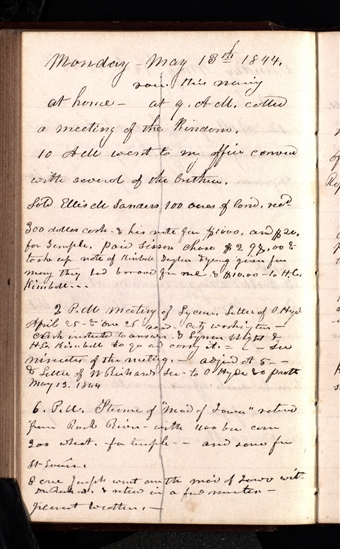 Monday – May 13th 1844.
rain this mornig
at home – at 9. A.M. called
a meeting of the Kingdom.
10 AM went to my office convsd
with several of the brethren.
Sold Ellis M Sanders 100 acres of land. recd
300 dollars cash & his note for $1000. and $20.
for temple. paid Sisson Chase $298.00 &
took up note of Kimball given for
mony they had borrowed for me. & $10.00 – to H.C.
Kimball –
2 P.M. meeting of Lyceum. Letter of O Hyde
April 25 – & one 26 read. City washington –
clerk instructed to answer. & Lyman Wight &
H.C. Kimball to go and carry it – see
minutes of the meeting – adjod at 5 –
& Letter of W Richards see – to O Hyde & O pratt
May 13. 1844
6. P.M. Steamer "Maid of Iowa" retund
from Rock River – with 100 bu corn
200 wheat. for temple – and some for
St Louis.
8 eve Joseph went on the maid of Iowa with
& retund in a few minutes –
pleasant weather. –